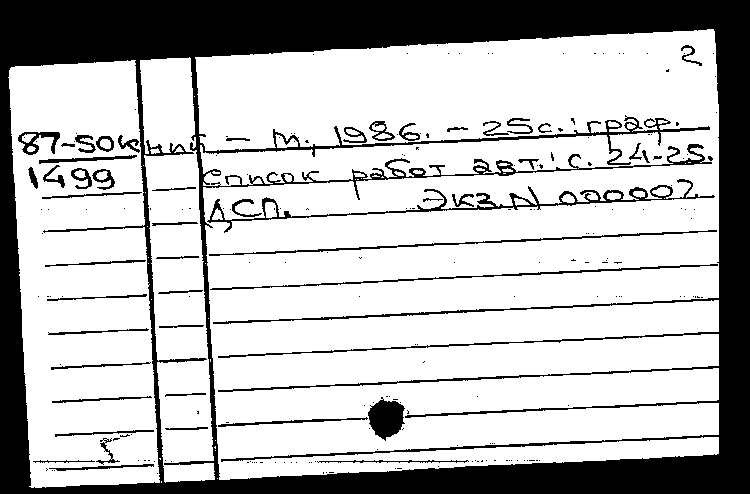 2
87-50к ний — М., 1986. — 25с.: граф.
1499 Список работ авт.: с. 24-25.
ДСП. Экз. N 000002